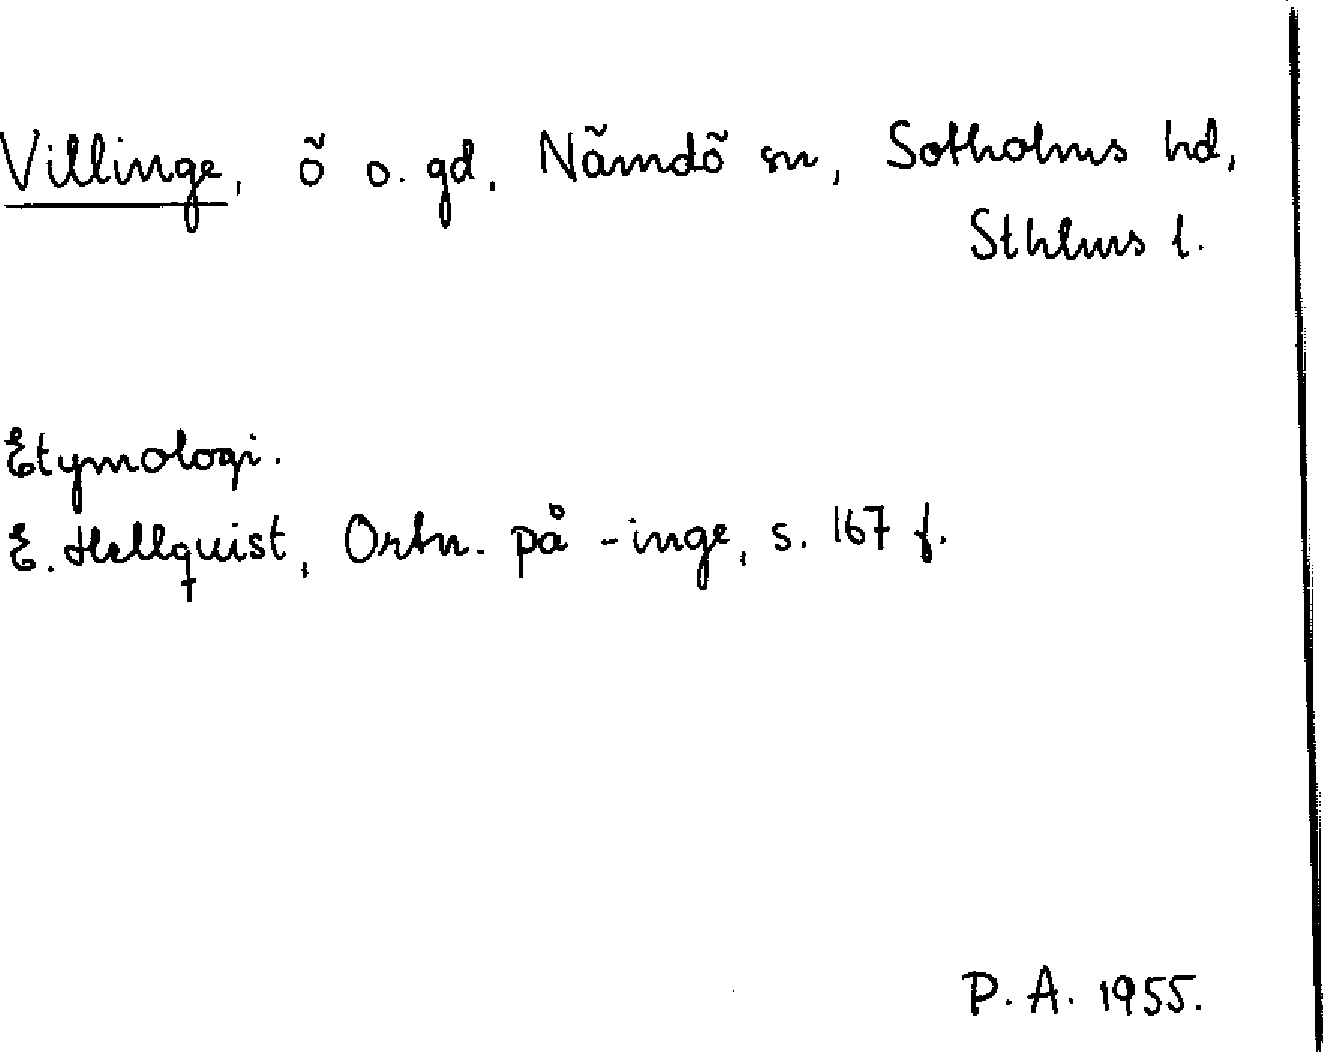 Villinge, ö o. gd. Nämdö sn, Sotholms hd,
Sthlms l.
Etymologi.
E. Hellquist, Ortn. på -inge, s. 167 f.
P. A. 1955.